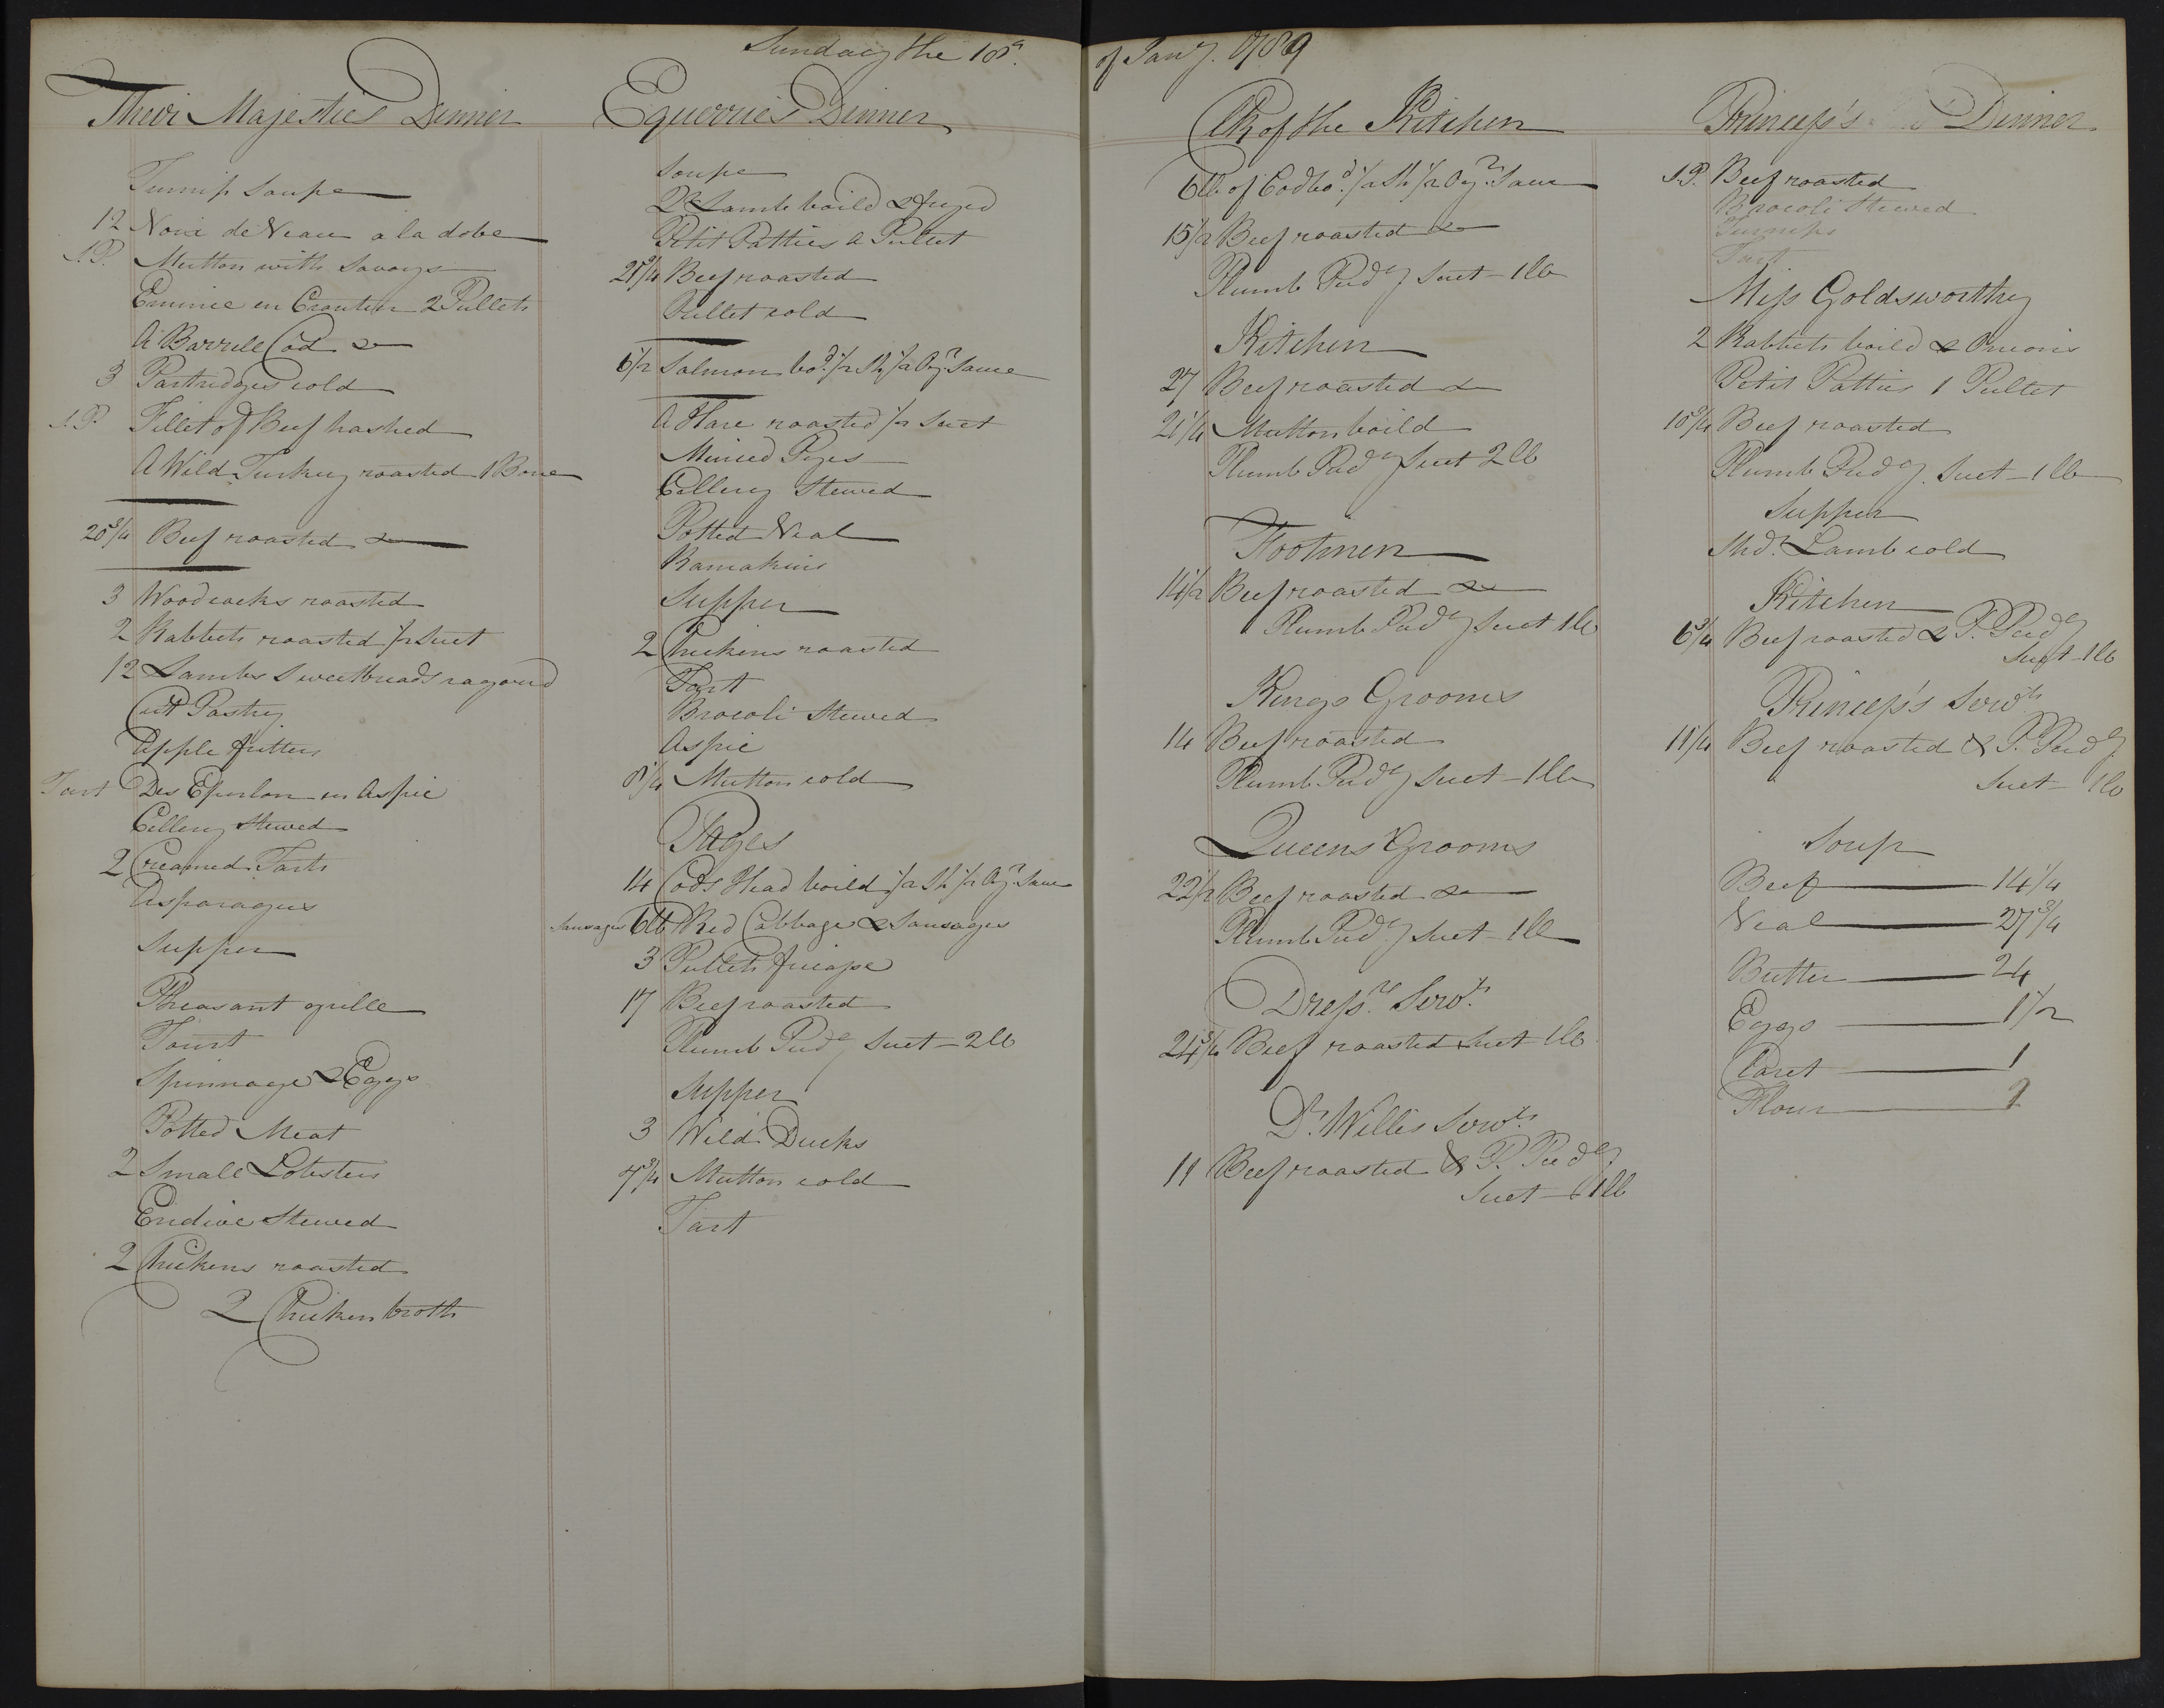 Sunday the 18th.
of Jany. 1789
Their Majesties Dinner
Turnip Soupe
12 Noix de Veau a la dobe
S.P. Mutton with Savoys
Emince en Croutien 2 Pullets
A Barrell Cod &
3 Partridges cold
S.P. Fillet of Beef hashed
A Wild Turkey roasted 1 Bone
20 3/4 Beef roasted &
3 Woodcocks roasted
2 Rabbets roasted 1/2 Suet
12 Lambs Sweetbreads ragoued
Cut Pastry
Apple fritters
Tart Des Eperlan en Aspic
Cellery Stewed
2 Creamed Tarts
Asparagus
Supper
Pheasant grille
Tourt
Spinnage & Eggs
Potted Meat
2 Small Lobsters
Endive Stewed
2 Chickens roasted
2 Chicken broth
Equerries Dinner
Soupe
Lamb boild & fryed
Petit Patties A Pullet
21 3/4 Beef roasted
Pullet cold
6 1/2 Salmon bod. 1/2 Sh. 1/2 Oyr. Sauce
A Hare roasted 1/2 Suet
Minced Pyes
Cellery Stewed
Potted Veal
Ramakins
Supper
2 Chickens roasted
Tart
Brocoli Stewed
Aspic
8 1/4 Mutton cold
Pages
14 Cods Head boild 1/2 Sh. 1/2 Oyr. Sauce
Sausages 6lb Red Cabbage & Sausages
3 Pullets fricasse
17 Beef roasted
Plumb Pudg Suet - 2 lb
Supper
3 Wild Ducks
7 3/4 Mutton cold
Tart
Clk of the Kitchen
6 lb. of Cod bod. 1/2 Sh 1/2 Oyr. Sauce
15 1/2 Beef roasted &
Plumb Pudg Suet - 1 lb
Kitchen
27 Beef roasted &
21 1/4 Mutton boild
Plumb Pudg Suet 2 lb
Footmen
14 1/2 Beef roasted &
Plumb Pudg Suet 1 lb
Kings Grooms
14 Beef roasted
Plumb Pudg Suet - 1 lb
Queens Grooms
22 1/2 Beef roasted &
Plumb Pudg Suet - 1 lb
Dressrs Servts.
24 3/4 Beef roasted Suet 1 lb
Dr. Willis Servts.
11 Beef roasted & P. Pudg
Suet - 1 lb
Princess's Dinner
S.P. Beef roasted
Brocoli Stewed
Turnips
Tart
Miss Goldsworthy
2 Rabbets boild & Onions
Petit Patties 1 Pullet
10 3/4 Beef roasted
Plumb Pudg. Suet - 1 lb
Supper
Shdr. Lamb cold
Kitchen
6 3/4 Beef roasted & P. Pudg
Suet - 1 lb
Princess's Servts
11 1/4 Beef roasted & P. Pudg
Suet - 1 lb
Soup
Beef 14 1/4
Veal 27 3/4
Butter 24
Eggs 1 1/2
Claret 1
Flour 2